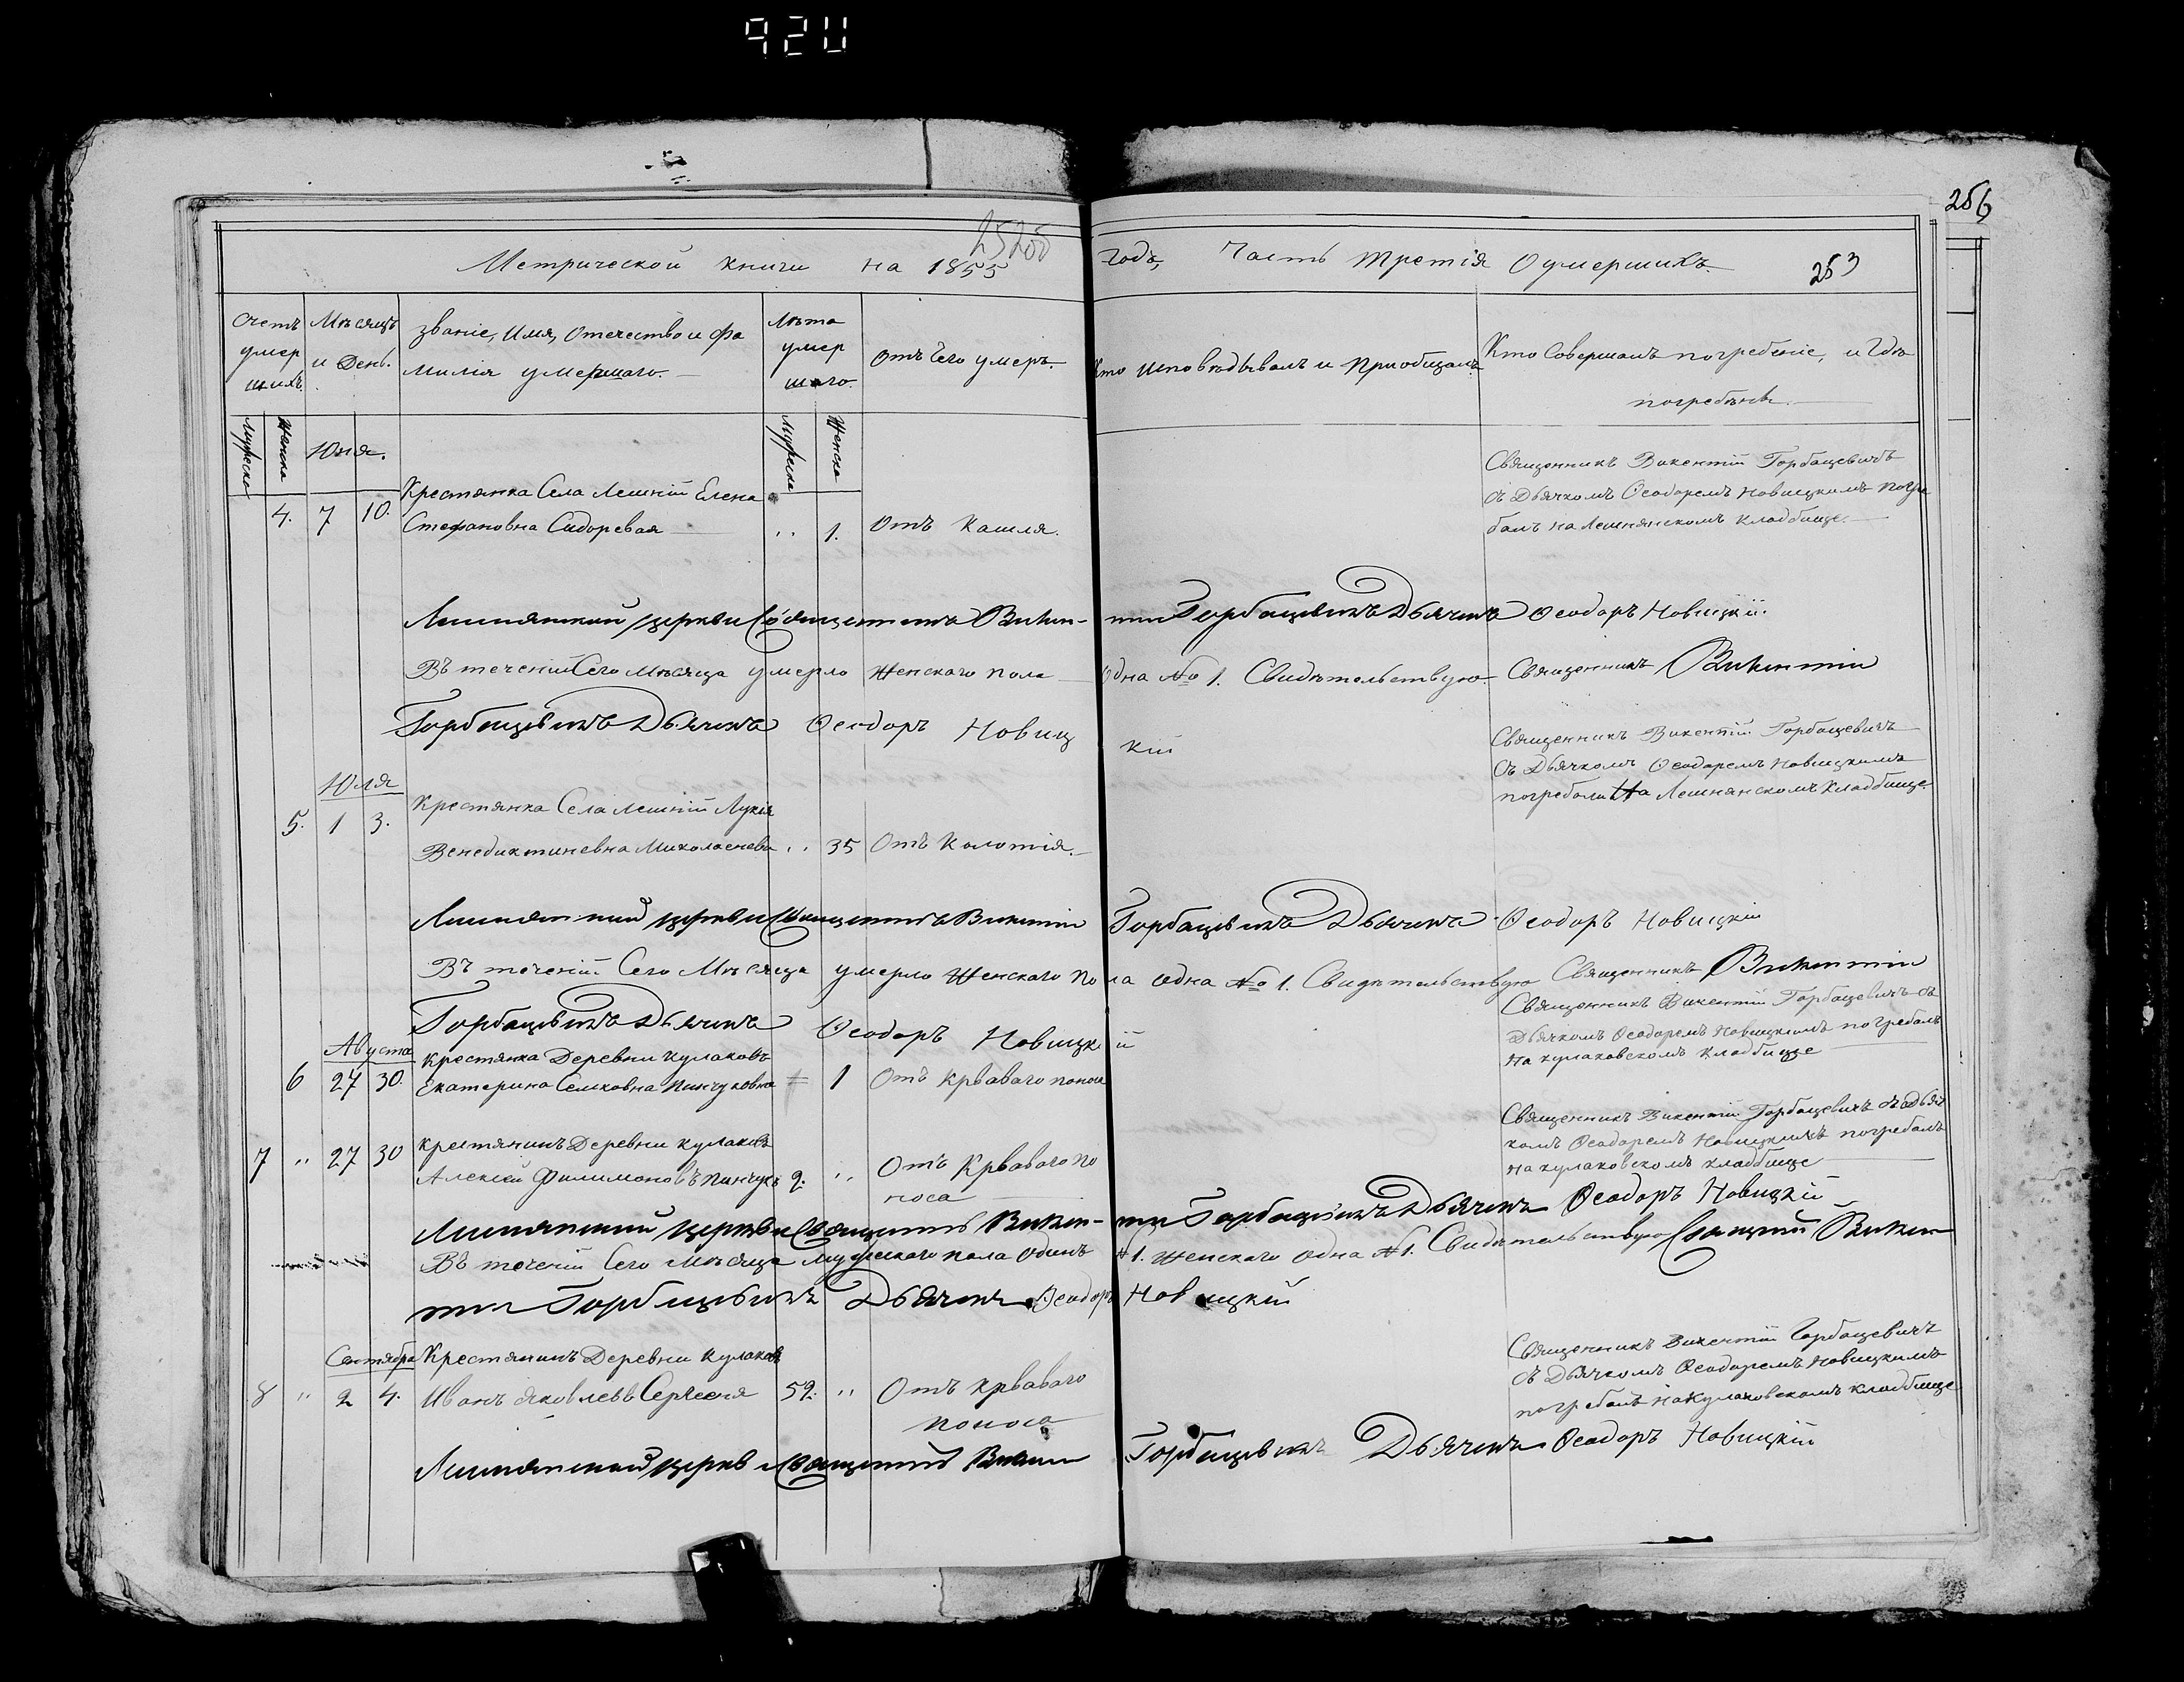 920
256
25200
Метрической книги на 1855 годъ, Часть третія О умершихъ. 253
Счетъ умершихъ.
Мѣсяцъ и день.
Званіе, Имя, Отечество и фамилія умершаго.
Лѣта умершаго.
Отъ чего умеръ.
Кто исповѣдывалъ и пріобщалъ.
Кто Совершалъ погребеніе, и Гдѣ погребены.
Мужеска Женска
Мужеска Женска
Юня.
4. 7 10. Крестянка Села Лешній Елена
Стефановна Сидоревая „ 1. Отъ Кашля.
Священникъ Викентій Горбацевичъ
съ Дьячкомъ Ѳеодоремъ Новицкимъ погре
балъ на Лешнянскомъ кладбище.
Лешнянской церкви Священникъ Викентій Горбацевичъ Дьячекъ Ѳеодоръ Новицкій
Въ теченій Сего Мѣсяца умерло Женскаго пола Одна № 1. Свидѣтельствую. Священникъ Викентій
Горбацевичъ Дьячекъ Ѳеодоръ Новицкій
Юля
5. 1 3. Крестянка Села Лешній Лукія
Венедиктиневна Миколаенева „ 35 Отъ Колотія.
Священникъ Викентій Горбацевичъ
съ Дьячкомъ Ѳеодоремъ Новицкимъ
погребали На Лешнянскомъ Кладбище
Лешнянской церкви Священникъ Викентій Горбацевичъ Дьячекъ Ѳеодоръ Новицкій
Въ теченій Сего Мѣсяца умерло Женскаго пола одна № 1. Свидѣтельствую Священникъ Викентій
Горбацевичъ Дьячекъ Ѳеодоръ Новицкій
Августа
6 27 30. Крестянка Деревни Кулаковъ
Екатерина Семковна Пинчуковна 1 Отъ крваваго поноса
Священникъ Викентій Горбацевичъ съ
Дьячкомъ Ѳеодоремъ Новицкимъ погребалъ
на кулаковскомъ кладбище
7 „ 27 30 крестянинъ Деревни кулаковъ
Алексей Филимоновъ Пинчукъ 2. „ Отъ Крваваго по
носа
Священникъ Викентій Горбацевичъ съ Дьяч
комъ Ѳеодоремъ Новицкимъ погребалъ
на кулаковскомъ кладбище
Лешнянской церкви Священникъ Викентій Горбацевичъ Дьячекъ Ѳеодоръ Новицкій
Въ теченій Сего Мѣсяца мужескаго пола одинъ №1. Женскаго одна №1. Свидѣтельствую Священникъ Викен
тій Горбацевичъ Дьячекъ Ѳеодоръ Новицкій
Сентября
8 „ 2 4. Крестянинъ Деревни Кулаковъ
Иванъ Яковлевъ 52. „ Отъ крваваго
поноса
Священникъ Викентій Горбацевичъ
съ Дьячкомъ Ѳеодоремъ Новицкимъ
погребалъ на Кулаковскомъ кладбище
Лешнянской церкви Священникъ Викентій Горбацевичъ Дьячекъ Ѳеодоръ Новицкій